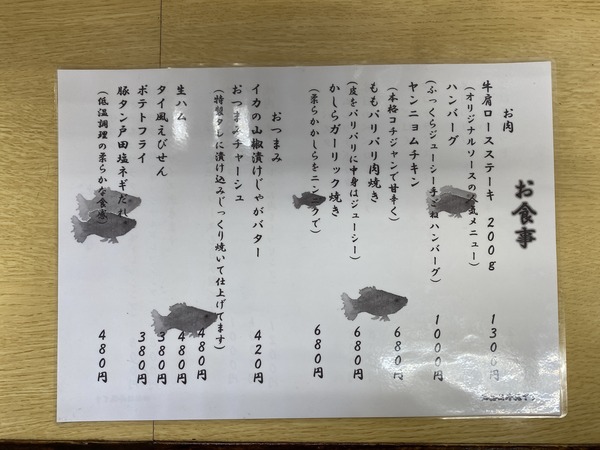 お食事
お肉
牛肩ロースステーキ 200g 1300円
(オリジナルソースの人気メニュー)
ハンバーグ 1000円
(ふっくらジューシー手ごねハンバーグ)
ヤンニョムチキン 680円
(本格コチジャンで甘辛く)
ももパリパリ肉焼き 680円
(皮をパリパリに中身はジューシー)
かしらガーリック焼き 680円
(柔らかかしらをニンニクで)
おつまみ
イカの山椒漬けじゃがバター 420円
おつまみチャーシュ 480円
(特製タレに漬け込みじっくり焼いて仕上げてます)
生ハム 480円
タイ風えびせん 380円
ポテトフライ 380円
豚タン戸田塩ネギだれ 480円
(低温調理の柔らかな食感)